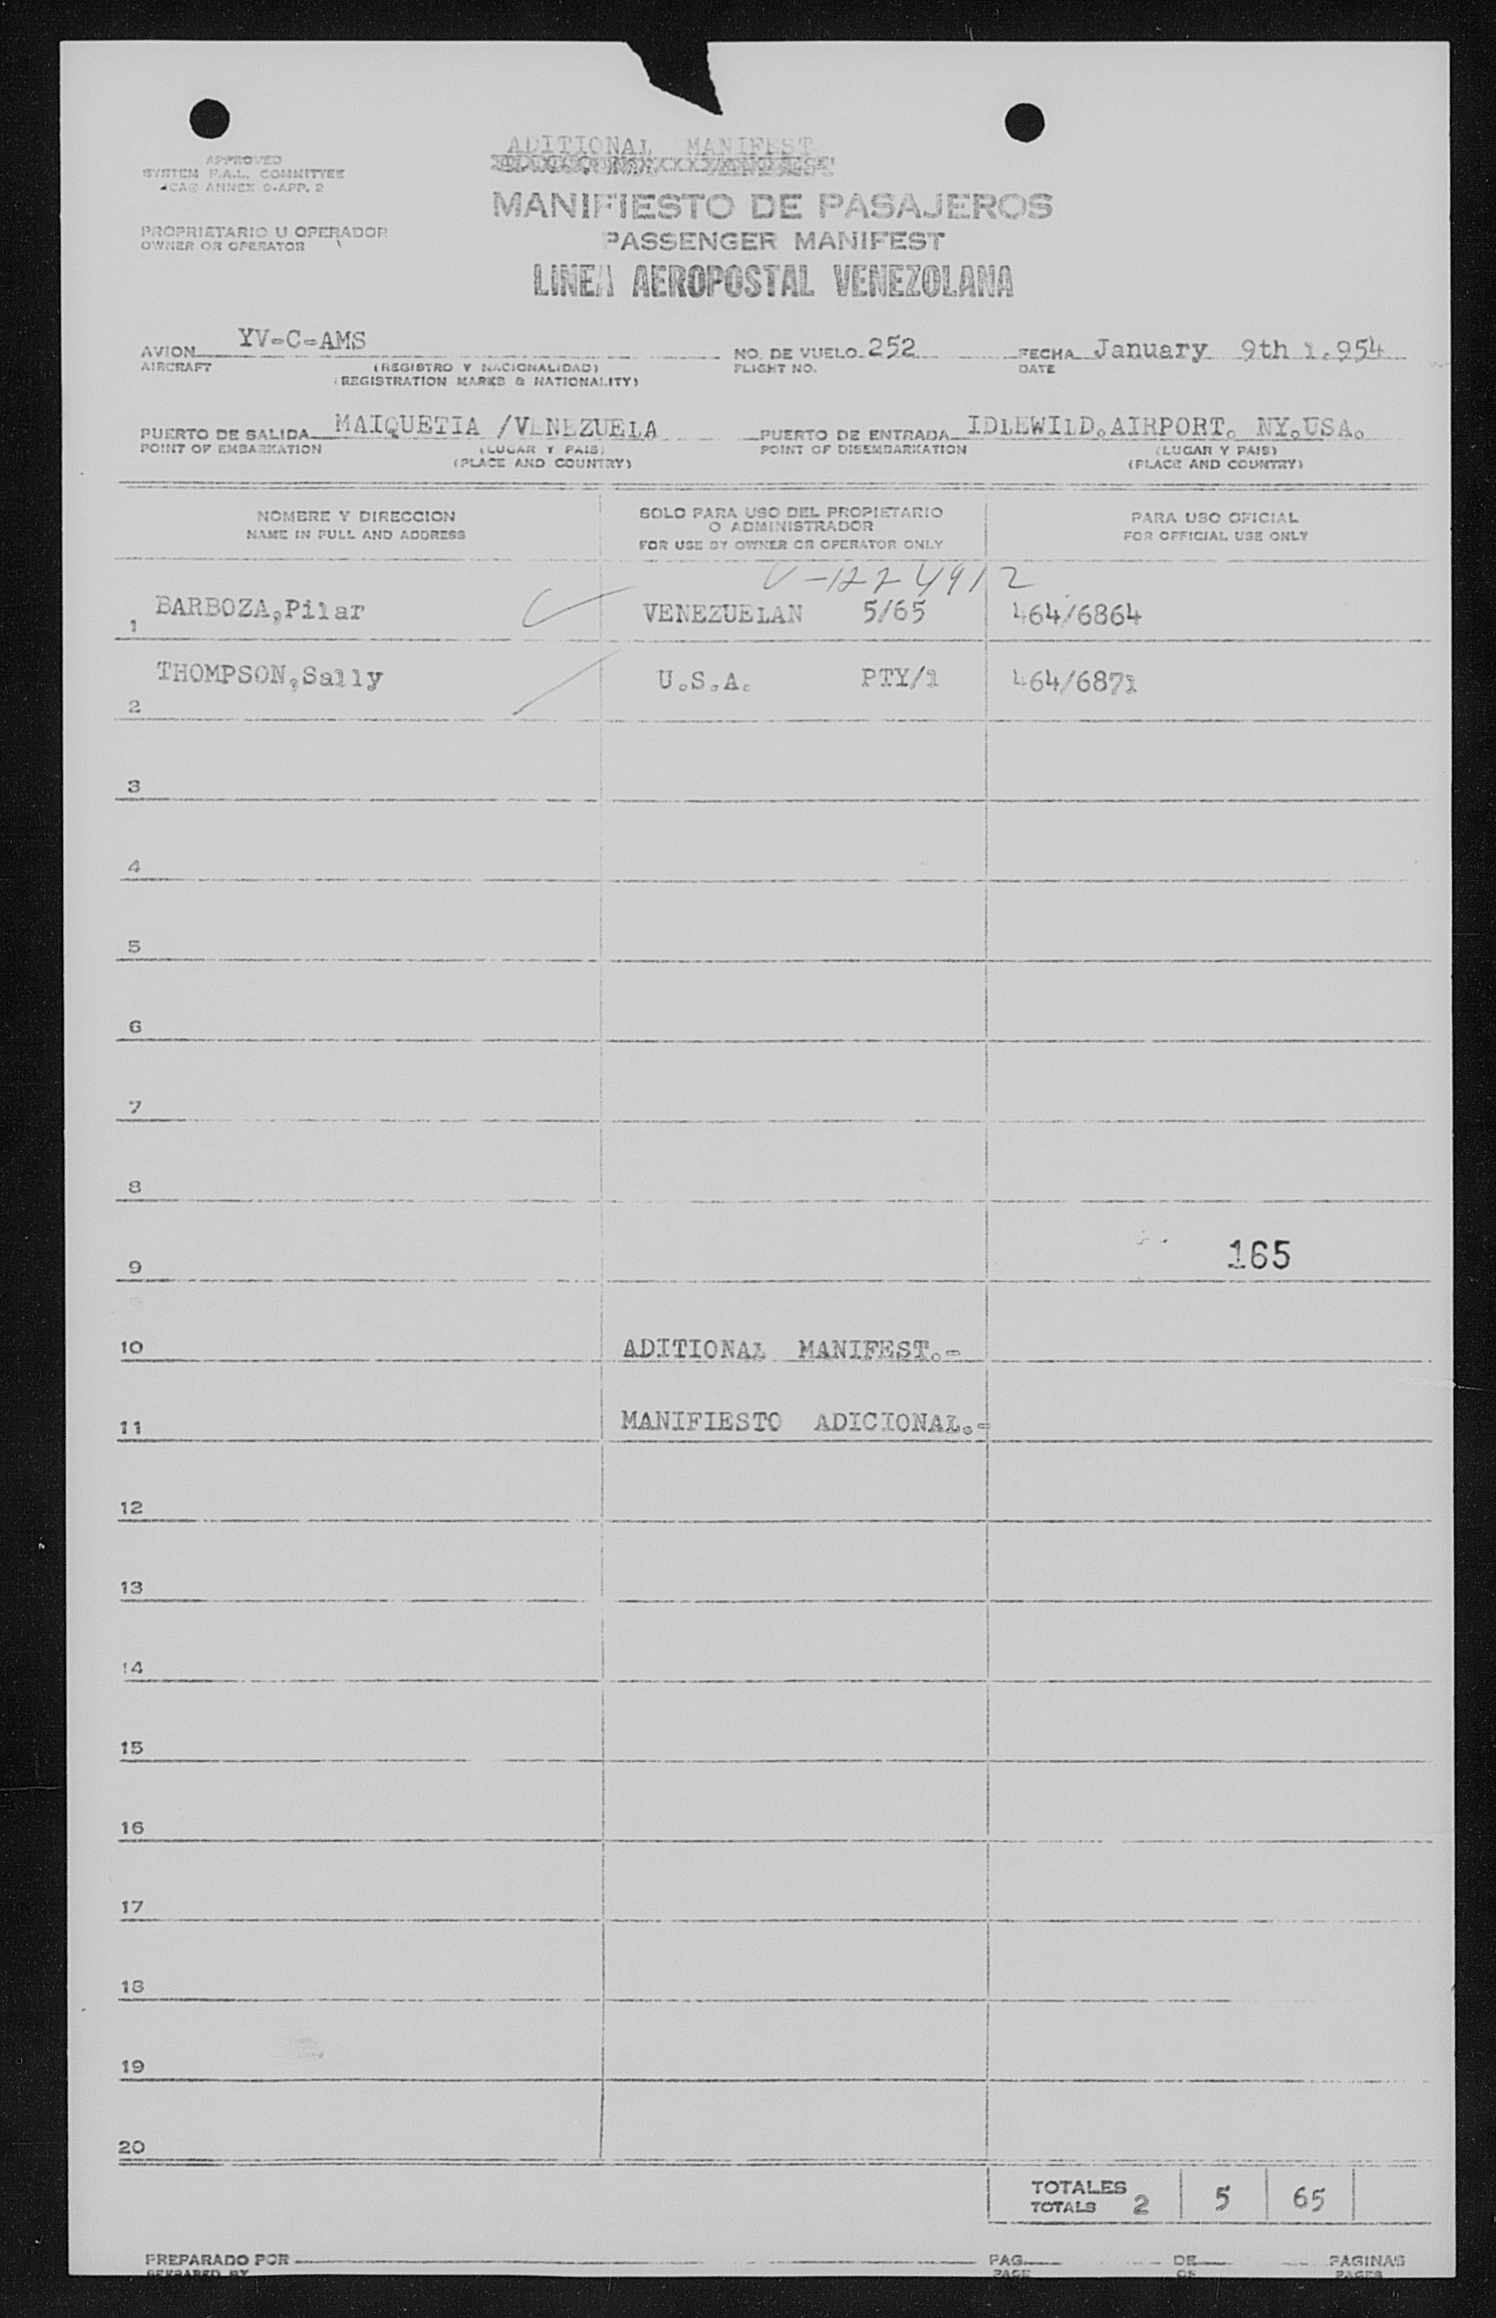 ADITIONAL MANIFEST
APPROVED
SYSTEM F.A.L. COMMITTEE
ICAO ANNEX 9-APP. 2
MANIFIESTO DE PASAJEROS
PROPRIETARIO U OPERADOR
OWNER OR OPERATOR
PASSENGER MANIFEST
LINEA AEROPOSTAL VENEZOLANA
AVION YV-C-AMS NO. DE VUELO 252 FECHA January 9th 1.954
AIRCRAFT (REGISTRO Y NACIONALIDAD) FLIGHT NO. DATE
(REGISTRATION MARKS & NATIONALITY)
PUERTO DE SALIDA MAIQUETIA /VENEZUELA PUERTO DE ENTRADA IDLEWILD.AIRPORT. NY.USA.
POINT OF EMBARKATION (LUGAR Y PAIS) POINT OF DISEMBARKATION (LUGAR Y PAIS)
(PLACE AND COUNTRY) (PLACE AND COUNTRY)
NOMBRE Y DIRECCION SOLO PARA USO DEL PROPIETARIO PARA USO OFICIAL
O ADMINISTRADOR
NAME IN FULL AND ADDRESS FOR USE BY OWNER OR OPERATOR ONLY FOR OFFICIAL USE ONLY
V-1224912
1 BARBOZA,Pilar VENEZUELAN 5/65 464/6864
2 THOMPSON,Sally U.S.A. PTY/1 464/6871
3
4
5
6
7
8
9 165
10 ADITIONAL MANIFEST.-
11 MANIFIESTO ADICIONAL.-
12
13
14
15
16
17
18
19
20
TOTALES
TOTALS 2 5 65
PREPARADO POR PAG. DE PAGINAS
PREPARED BY PAGE OF PAGES